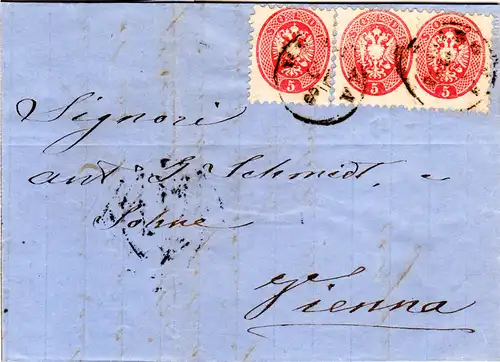 5 5 5
Signori
ant. G. Schmidt,
Sohne
Vienna